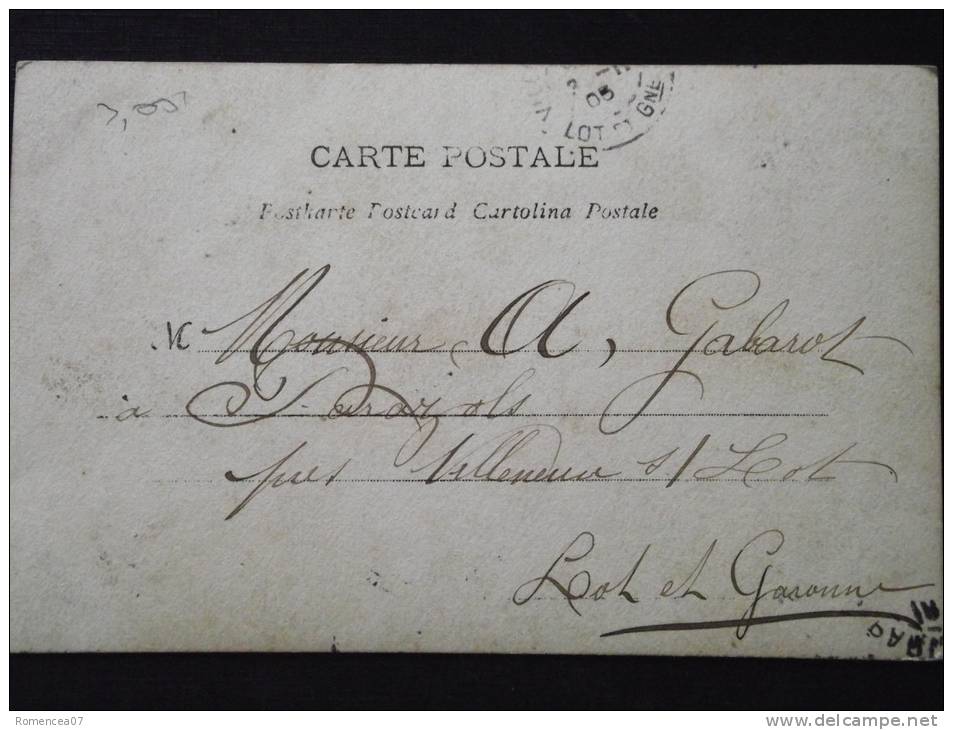 3,00
05
LOT ET GNE
CARTE POSTALE
Postkarte Postcard Cartolina Postale
M Monsieur A, Gabarot
à
près Villeneuve s/ Lot
Lot et Garonne
Romencea07
www.delcampe.net